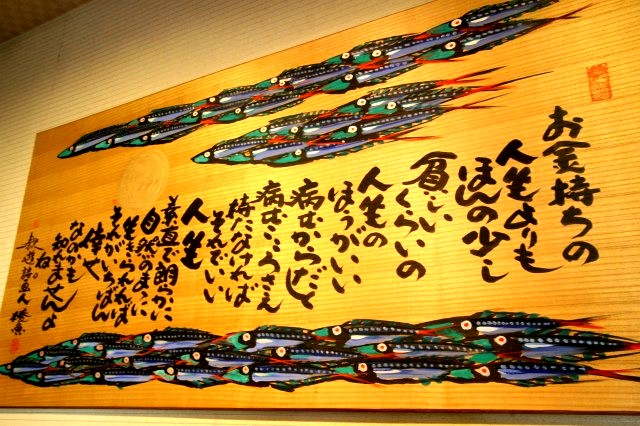 お金持ちの
人生よりも
ほんの少し
貧しい
くらいの
人生の
ほうがいい
病むからだと
病むこころさえ
持たなければ
それでいい
人生
素直で朗らかに
自然のまゝに
生きられれば
それがいちばん
倖せ
なのかも
知れませんよ
ね。